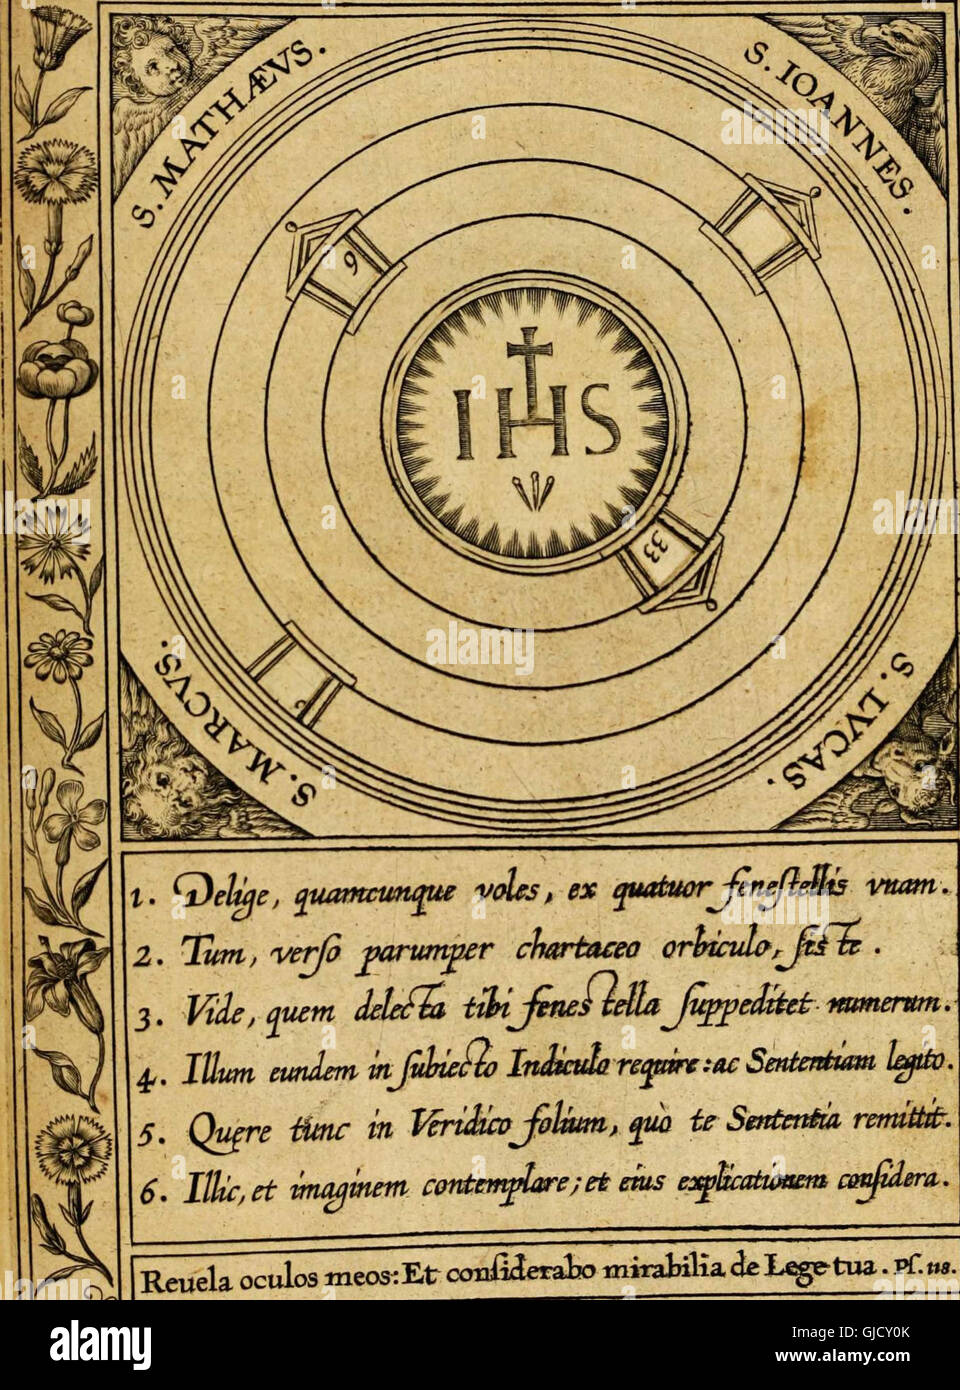 S. MATHÆVS.
S. IOANNES.
9
IHS
33
S. MARCVS.
S. LVCAS.
1. Delige, quamcunque voles, ex quatuor feneſtellis vnam.
2. Tum, verſo parumper chartaceo orbiculo, ſiste.
3. Vide, quem delecta tibi fenestella ſuppeditet numerum.
4. Illum eundem in ſubiecto Indiculo require: ac Sententiam legito.
5. Quęre tunc in Veridico folium, quò te Sententia remittit.
6. Illic, et imaginem contemplare; et eius explicationem conſidera.
Reuela oculos meos: Et conſiderabo mirabilia de Lege tua. Pſ. 118.
alamy
alamy stock photo
a
alamy
Image ID: GJCY0K
www.alamy.com